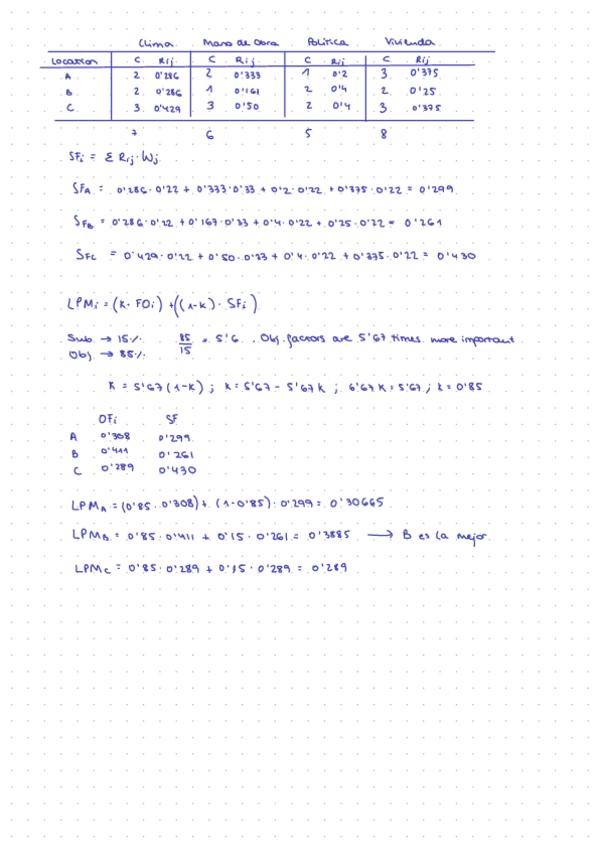 Clima Mano de Obra Política Vivienda
Location C Rij C Rij C Rij C Rij
A 2 0'286 2 0'333 1 0'2 3 0'375
B 2 0'286 1 0'161 2 0'4 2 0'25
C 3 0'429 3 0'50 2 0'4 3 0'375
7 6 5 8
SFi = Σ Rij · Wj
SFA = 0'286 · 0'22 + 0'333 · 0'33 + 0'2 · 0'22 + 0'375 · 0'22 = 0'299
SFB = 0'286 · 0'22 + 0'167 · 0'33 + 0'4 · 0'22 + 0'25 · 0'22 = 0'261
SFC = 0'429 · 0'22 + 0'50 · 0'33 + 0'4 · 0'22 + 0'375 · 0'22 = 0'430
LPMi = (K · FOi) + ((1-k) · SFi)
Sub → 15% 85/15 = 5'6 . Obj. factors are 5'67 times more important
Obj → 85%
K = 5'67 (1-K) ; K = 5'67 - 5'67 K ; 6'67 K = 5'67 ; k = 0'85
OFi SF
A 0'308 0'299
B 0'411 0'261
C 0'289 0'430
LPMA = (0'85 · 0'308) + (1-0'85) · 0'299 = 0'30665
LPMB = 0'85 · 0'411 + 0'15 · 0'261 = 0'3885 → B es la mejor
LPMC = 0'85 · 0'289 + 0'15 · 0'289 = 0'289